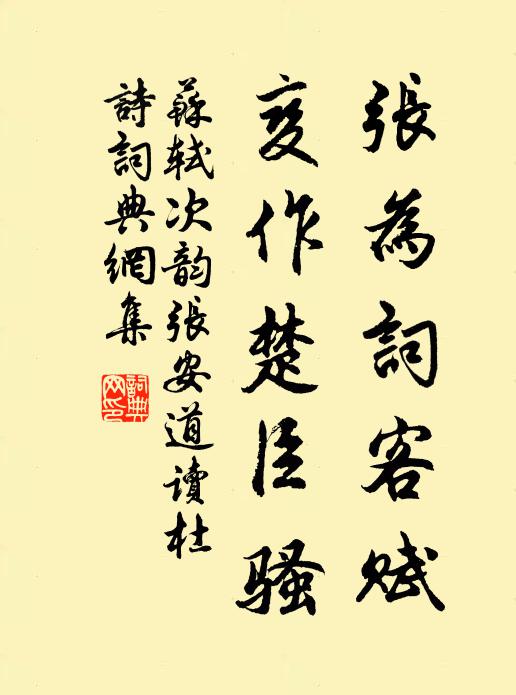 張為詞客賦
变作楚臣騷
蘇軾次韵張安道讀杜
詩詞典網集
詞典網印